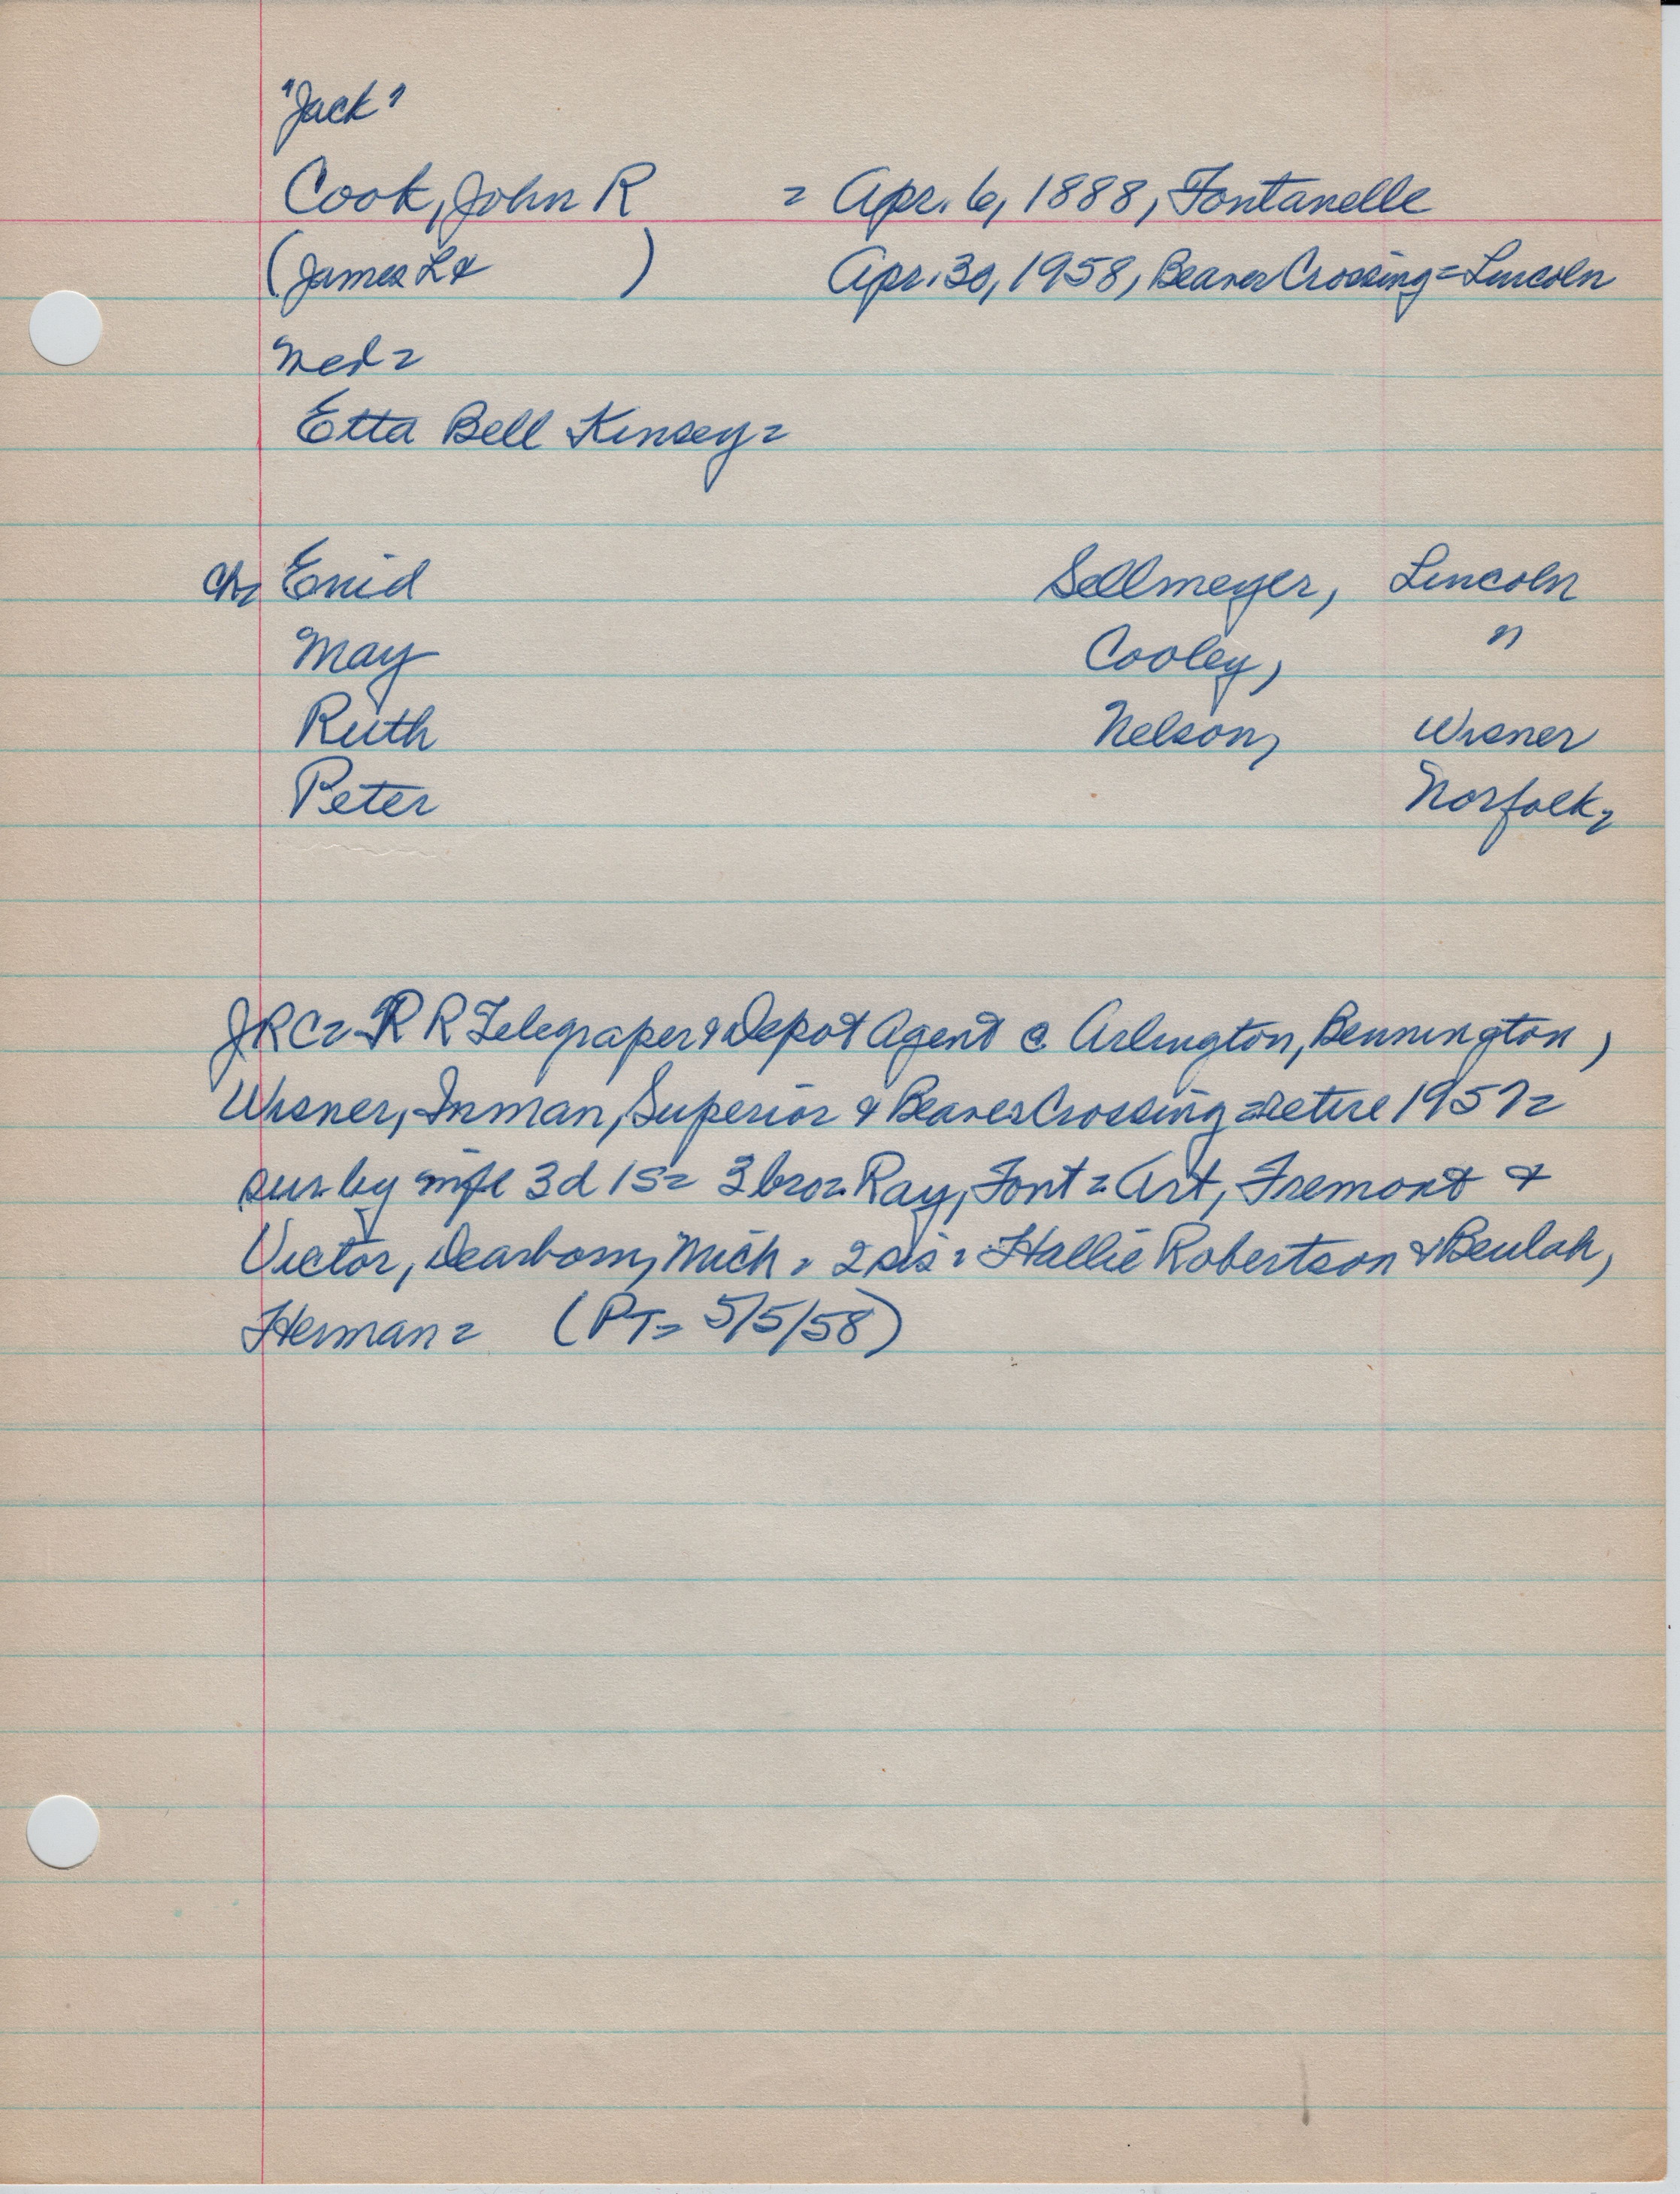 "Jack"
Cook, John R = Apr. 6, 1888, Fontanelle
(James L & ) Apr. 30, 1958, Beaver Crossing = Lincoln
Med =
Etta Bell Kinsey =
ch = Enid Sellmeyer, Lincoln
May Cooley, "
Ruth Nelson, Wisner
Peter Norfolk,
JRC = R R Telegraper & Depot Agent @ Arlington, Bennington,
Wisner, Inman, Superior & Beaver Crossing = retire 1957 =
sur by wife 3d 1s = 3 bro = Ray, Font = Art, Fremont &
Victor, Dearborn, Mich = 2 sis = Hallie Robertson & Beulah,
Herman = (PT = 5/5/58)